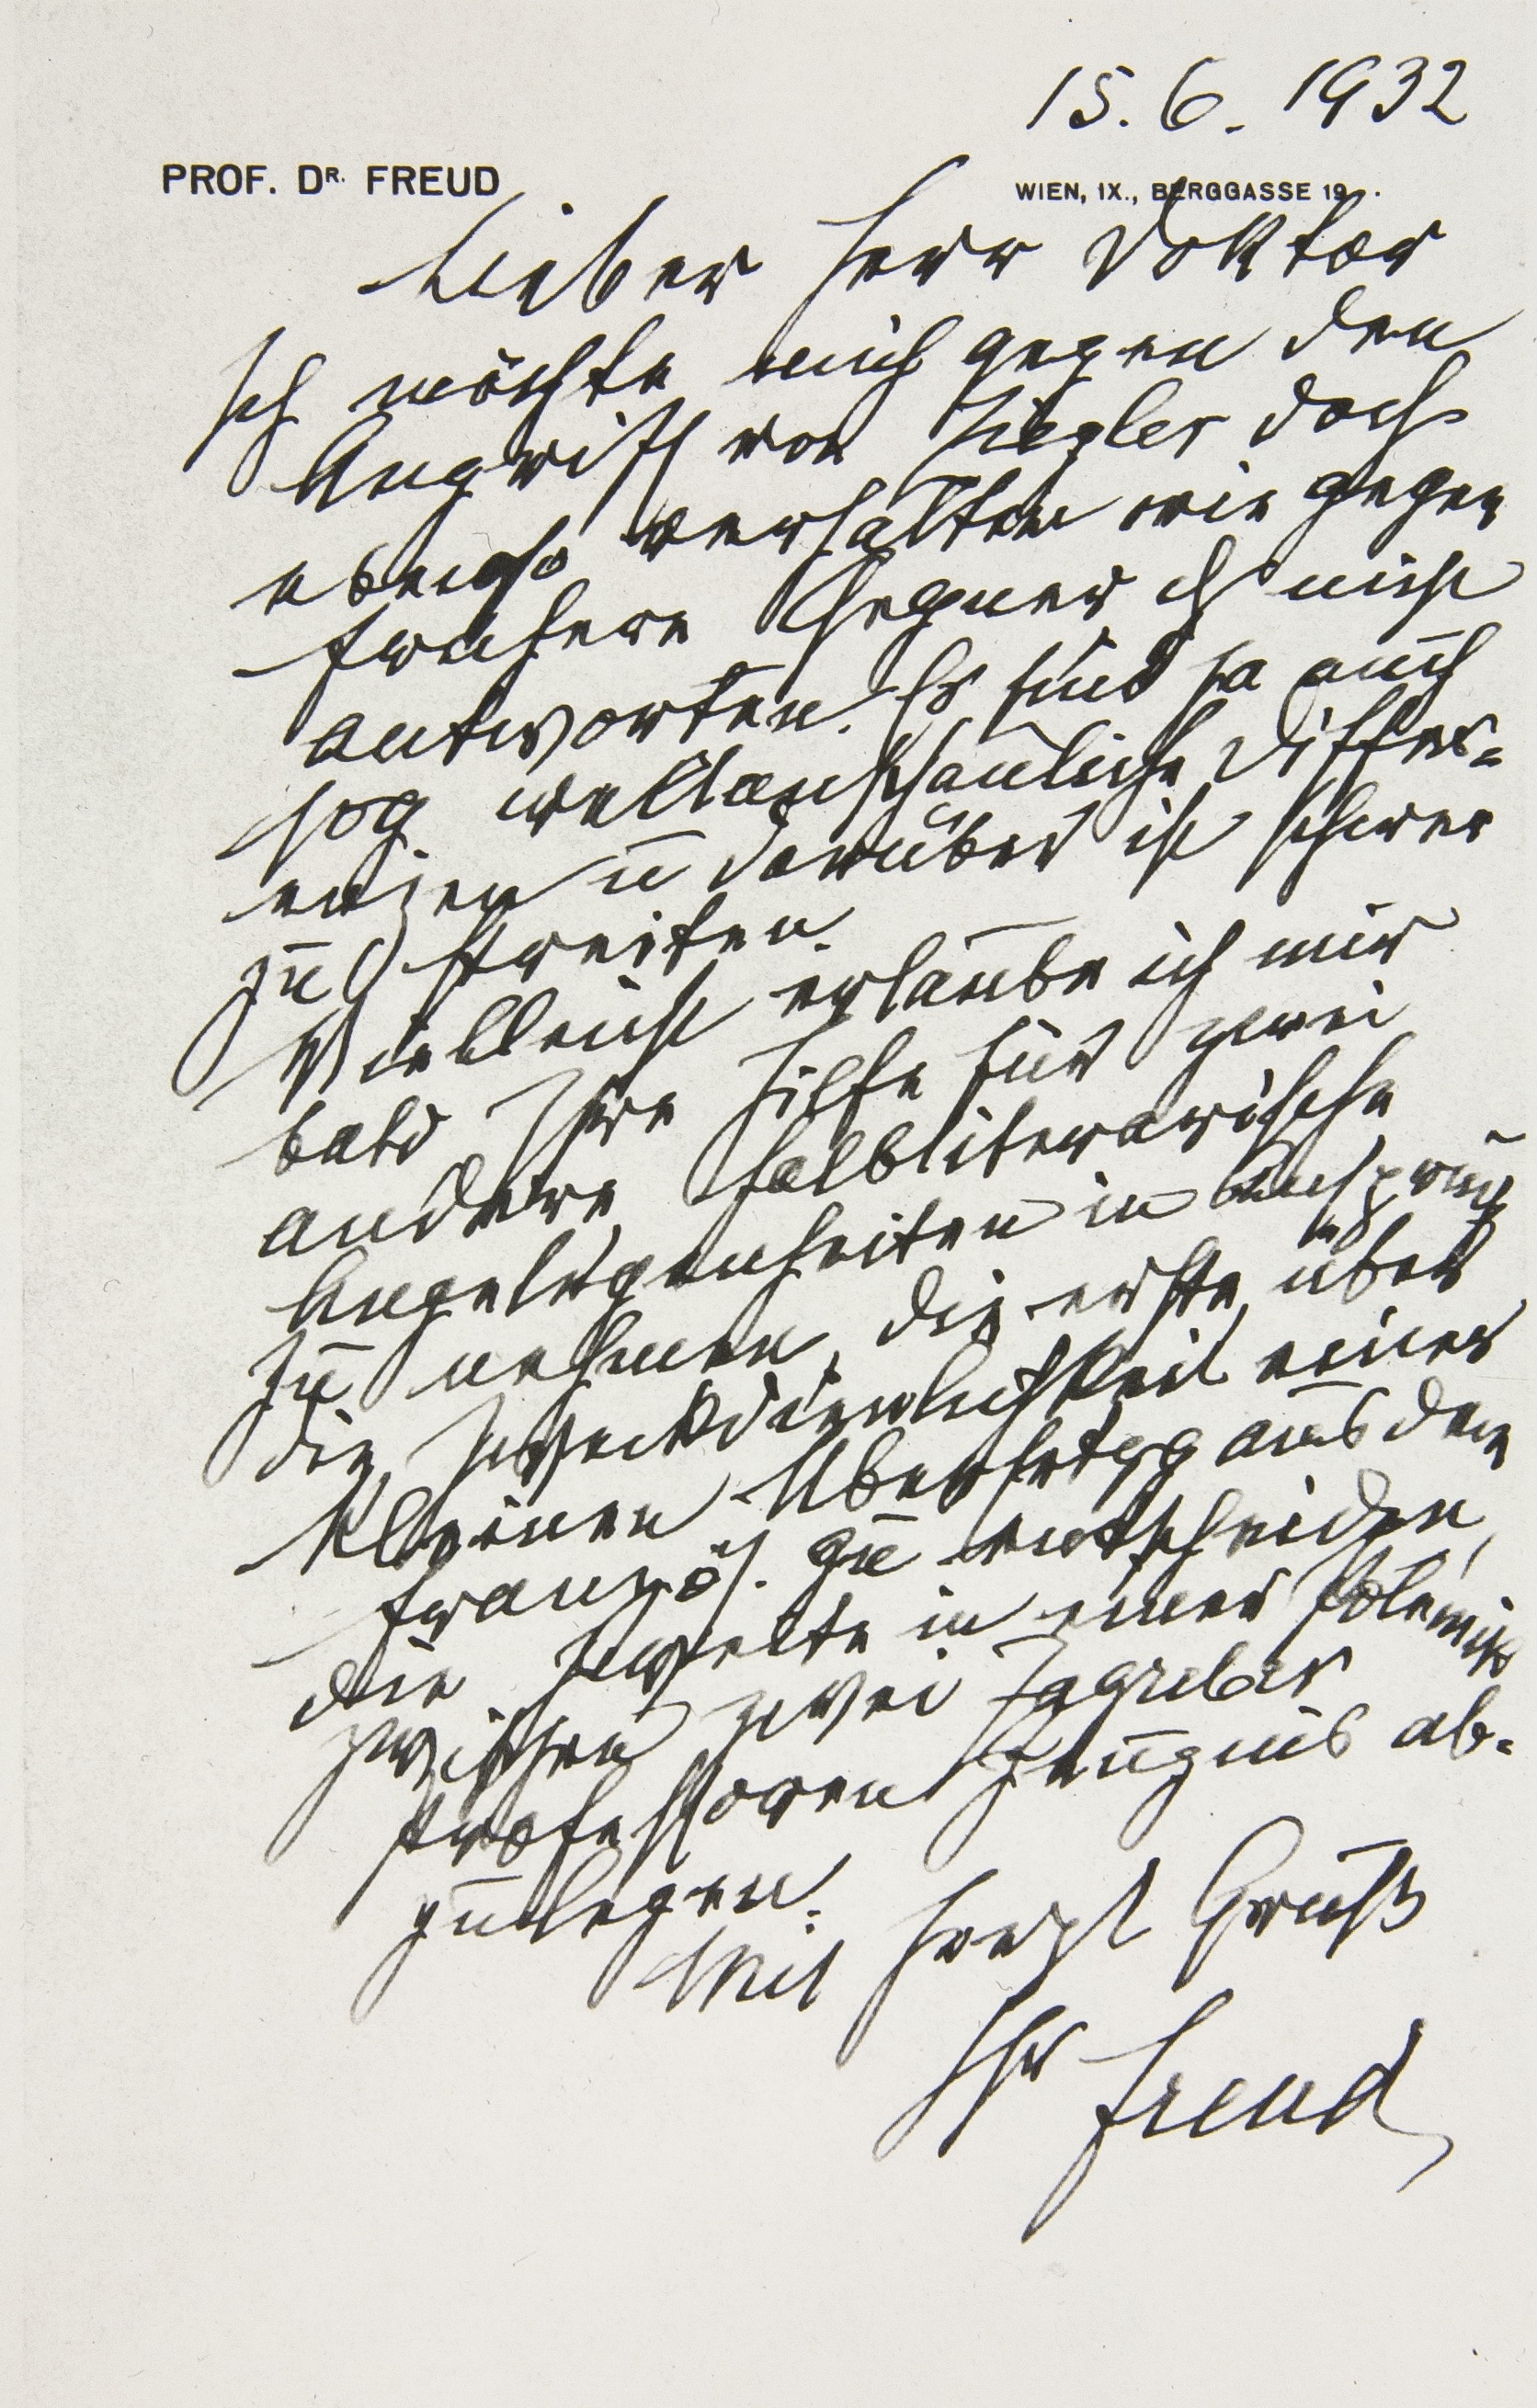 15. 6. 1932
PROF. DR. FREUD WIEN, IX., BERGGASSE 19.
Lieber Herr Doktor
Ich möchte mich gegen den
Angriff von Ziegler doch
ebenso verhalten wie gegen
frühere Gegner, nicht
antworten. Es sind ja auch
sog weltanschauliche Differ=
enzen u darüber ist schwer
zu streiten.
Vielleicht erlaube ich mir
bald Ihre Hilfe für zwei
andere halbliterarische
Angelegenheiten in Anspruch
zu nehmen, die erste über
die Zweckdienlichkeit einer
kleinen Übersetzg aus dem
französ. zu entscheiden,
die zweite in einer Polemik
zwischen zwei Zagreber
Professoren Zeugnis ab=
zulegen.
Mit herzl Gruß
Ihr Freud